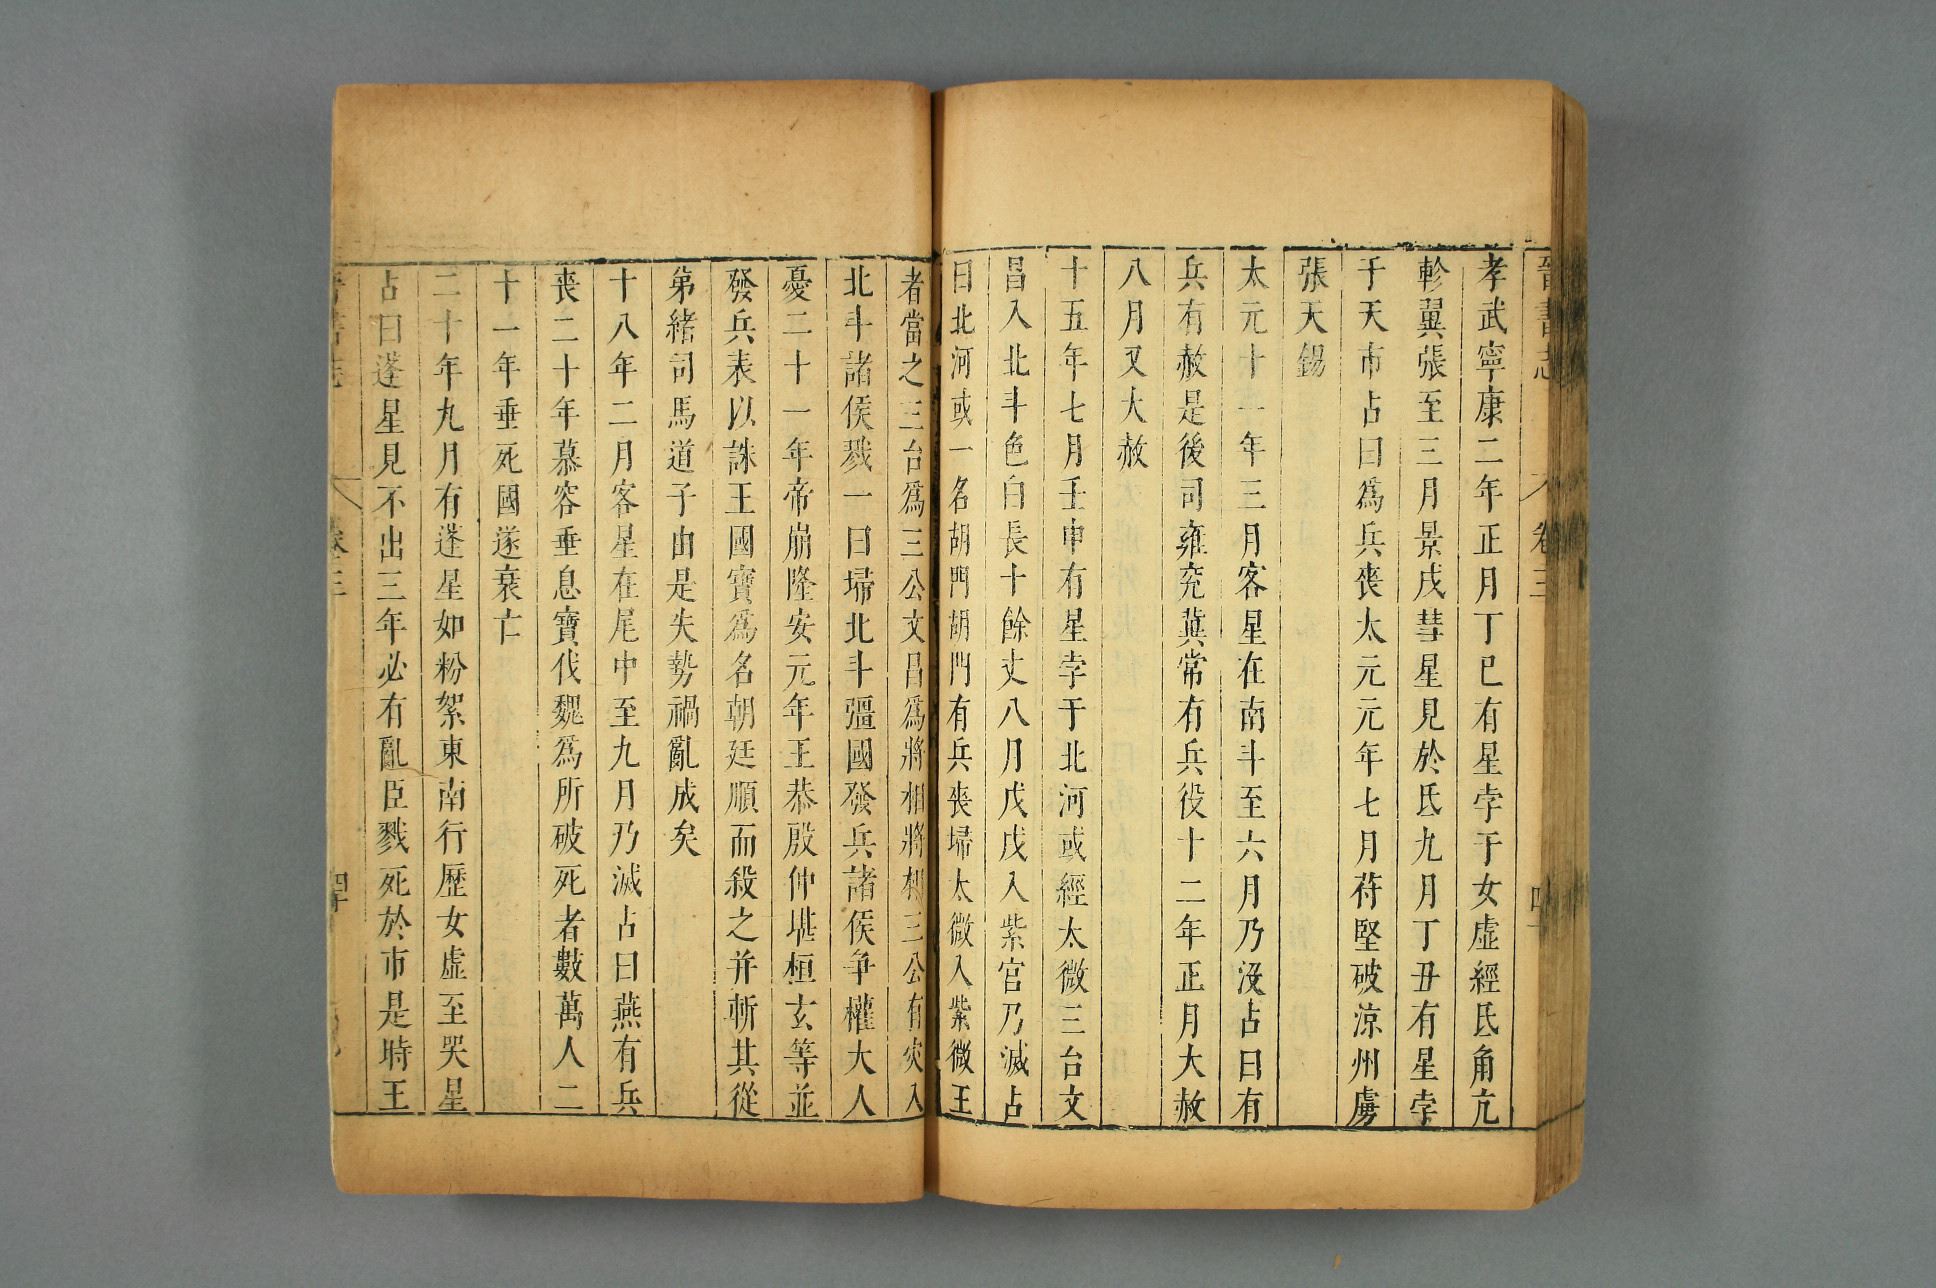 晉書志 卷三
孝武寧康二年正月丁巳有星孛于女虛經氐角亢
軫翼張至三月景戌彗星見於氐九月丁丑有星孛
于天市占曰爲兵喪太元元年七月苻堅破涼州虜
張天錫
太元十一年三月客星在南斗至六月乃沒占曰有
兵有赦是後司雍兖冀常有兵役十二年正月大赦
八月又大赦
十五年七月壬申有星孛于北河或經太微三台文
昌入北斗色白長十餘丈八月戊戌入紫宮乃滅占
曰北河或一名胡門胡門有兵喪掃太微入紫微王
者當之三台爲三公文昌爲將相將相三公有灾入
北斗諸侯戮一曰掃北斗彊國發兵諸侯爭權大人
憂二十一年帝崩隆安元年王恭殷仲堪桓玄等並
發兵表以誅王國寶爲名朝廷順而殺之并斬其從
弟緒司馬道子由是失勢禍亂成矣
十八年二月客星在尾中至九月乃滅占曰燕有兵
喪二十年慕容垂息寶伐魏爲所破死者數萬人二
十一年垂死國遂衰亡
二十年九月有蓬星如粉絮東南行歷女虛至哭星
占曰蓬星見不出三年必有亂臣戮死於市是時王
晉書志 卷三 四十